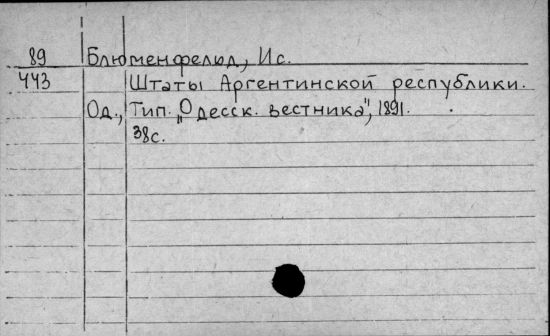 89 Блюменфельд, Ис.
443 Штаты Аргентинской республики.
Од., Тип. „Одесск. вестника", 1891.
38с.